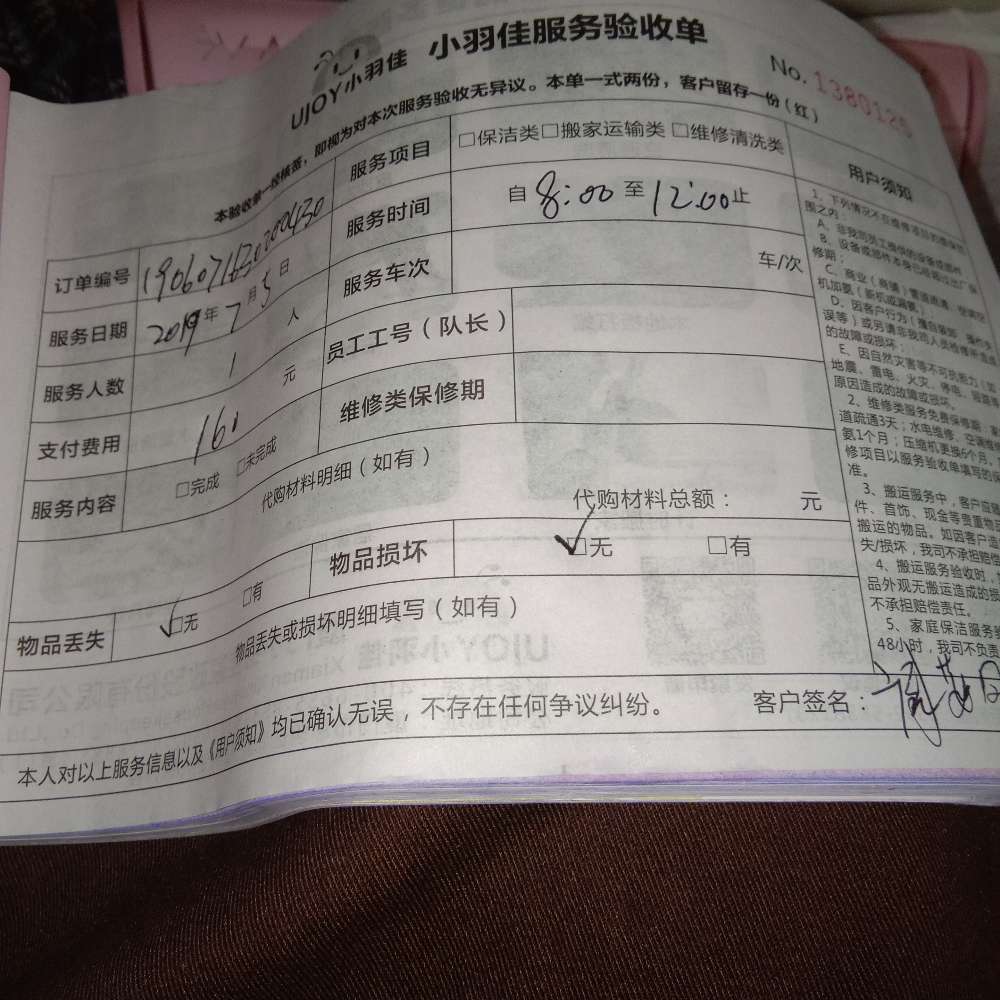 UJOY小羽佳 小羽佳服务验收单
No. 1380125
本验收单一经核签,即视为对本次服务验收无异议。本单一式两份,客户留存一份(红)
订单编号
服务项目 □保洁类□搬家运输类 □维修清洗类
服务日期 2019年7月5日
服务时间 自8:00至12:00止
服务人数 1 人
服务车次 车/次
支付费用 160 元
员工工号(队长)
服务内容 □完成 □未完成
维修类保修期
代购材料明细(如有)
代购材料总额: 元
物品丢失 □无 □有
物品损坏 □无 □有
物品丢失或损坏明细填写(如有)
本人对以上服务信息以及《用户须知》均已确认无误,不存在任何争议纠纷。 客户签名:
用户须知
1、下列情况不在维修项目的维保范
围之内:
A、非我司员工
修期;
C、商业(商铺)
机加氨(新机或漏氨);
D、因客户行为
误等)或另请非我司人员维修所造成
的故障或损坏;
E、因自然灾害等不可抗能力(如
地震、雷电、火灾、停电、
原因造成的故障或损坏。
2、维修类服务免费保修期:
道疏通3天;水电维修、空调维修
氨1个月;压缩机更换6个月,
修项目以服务验收单填写的保
准。
3、搬运服务中,客户应
件、首饰、现金等贵重物品
搬运的物品。如因客户
失/损坏,我司不承担赔偿
4、搬运服务验收时,
品外观无搬运造成的损
不承担赔偿责任。
5、家庭保洁服务
48小时,我司不负责